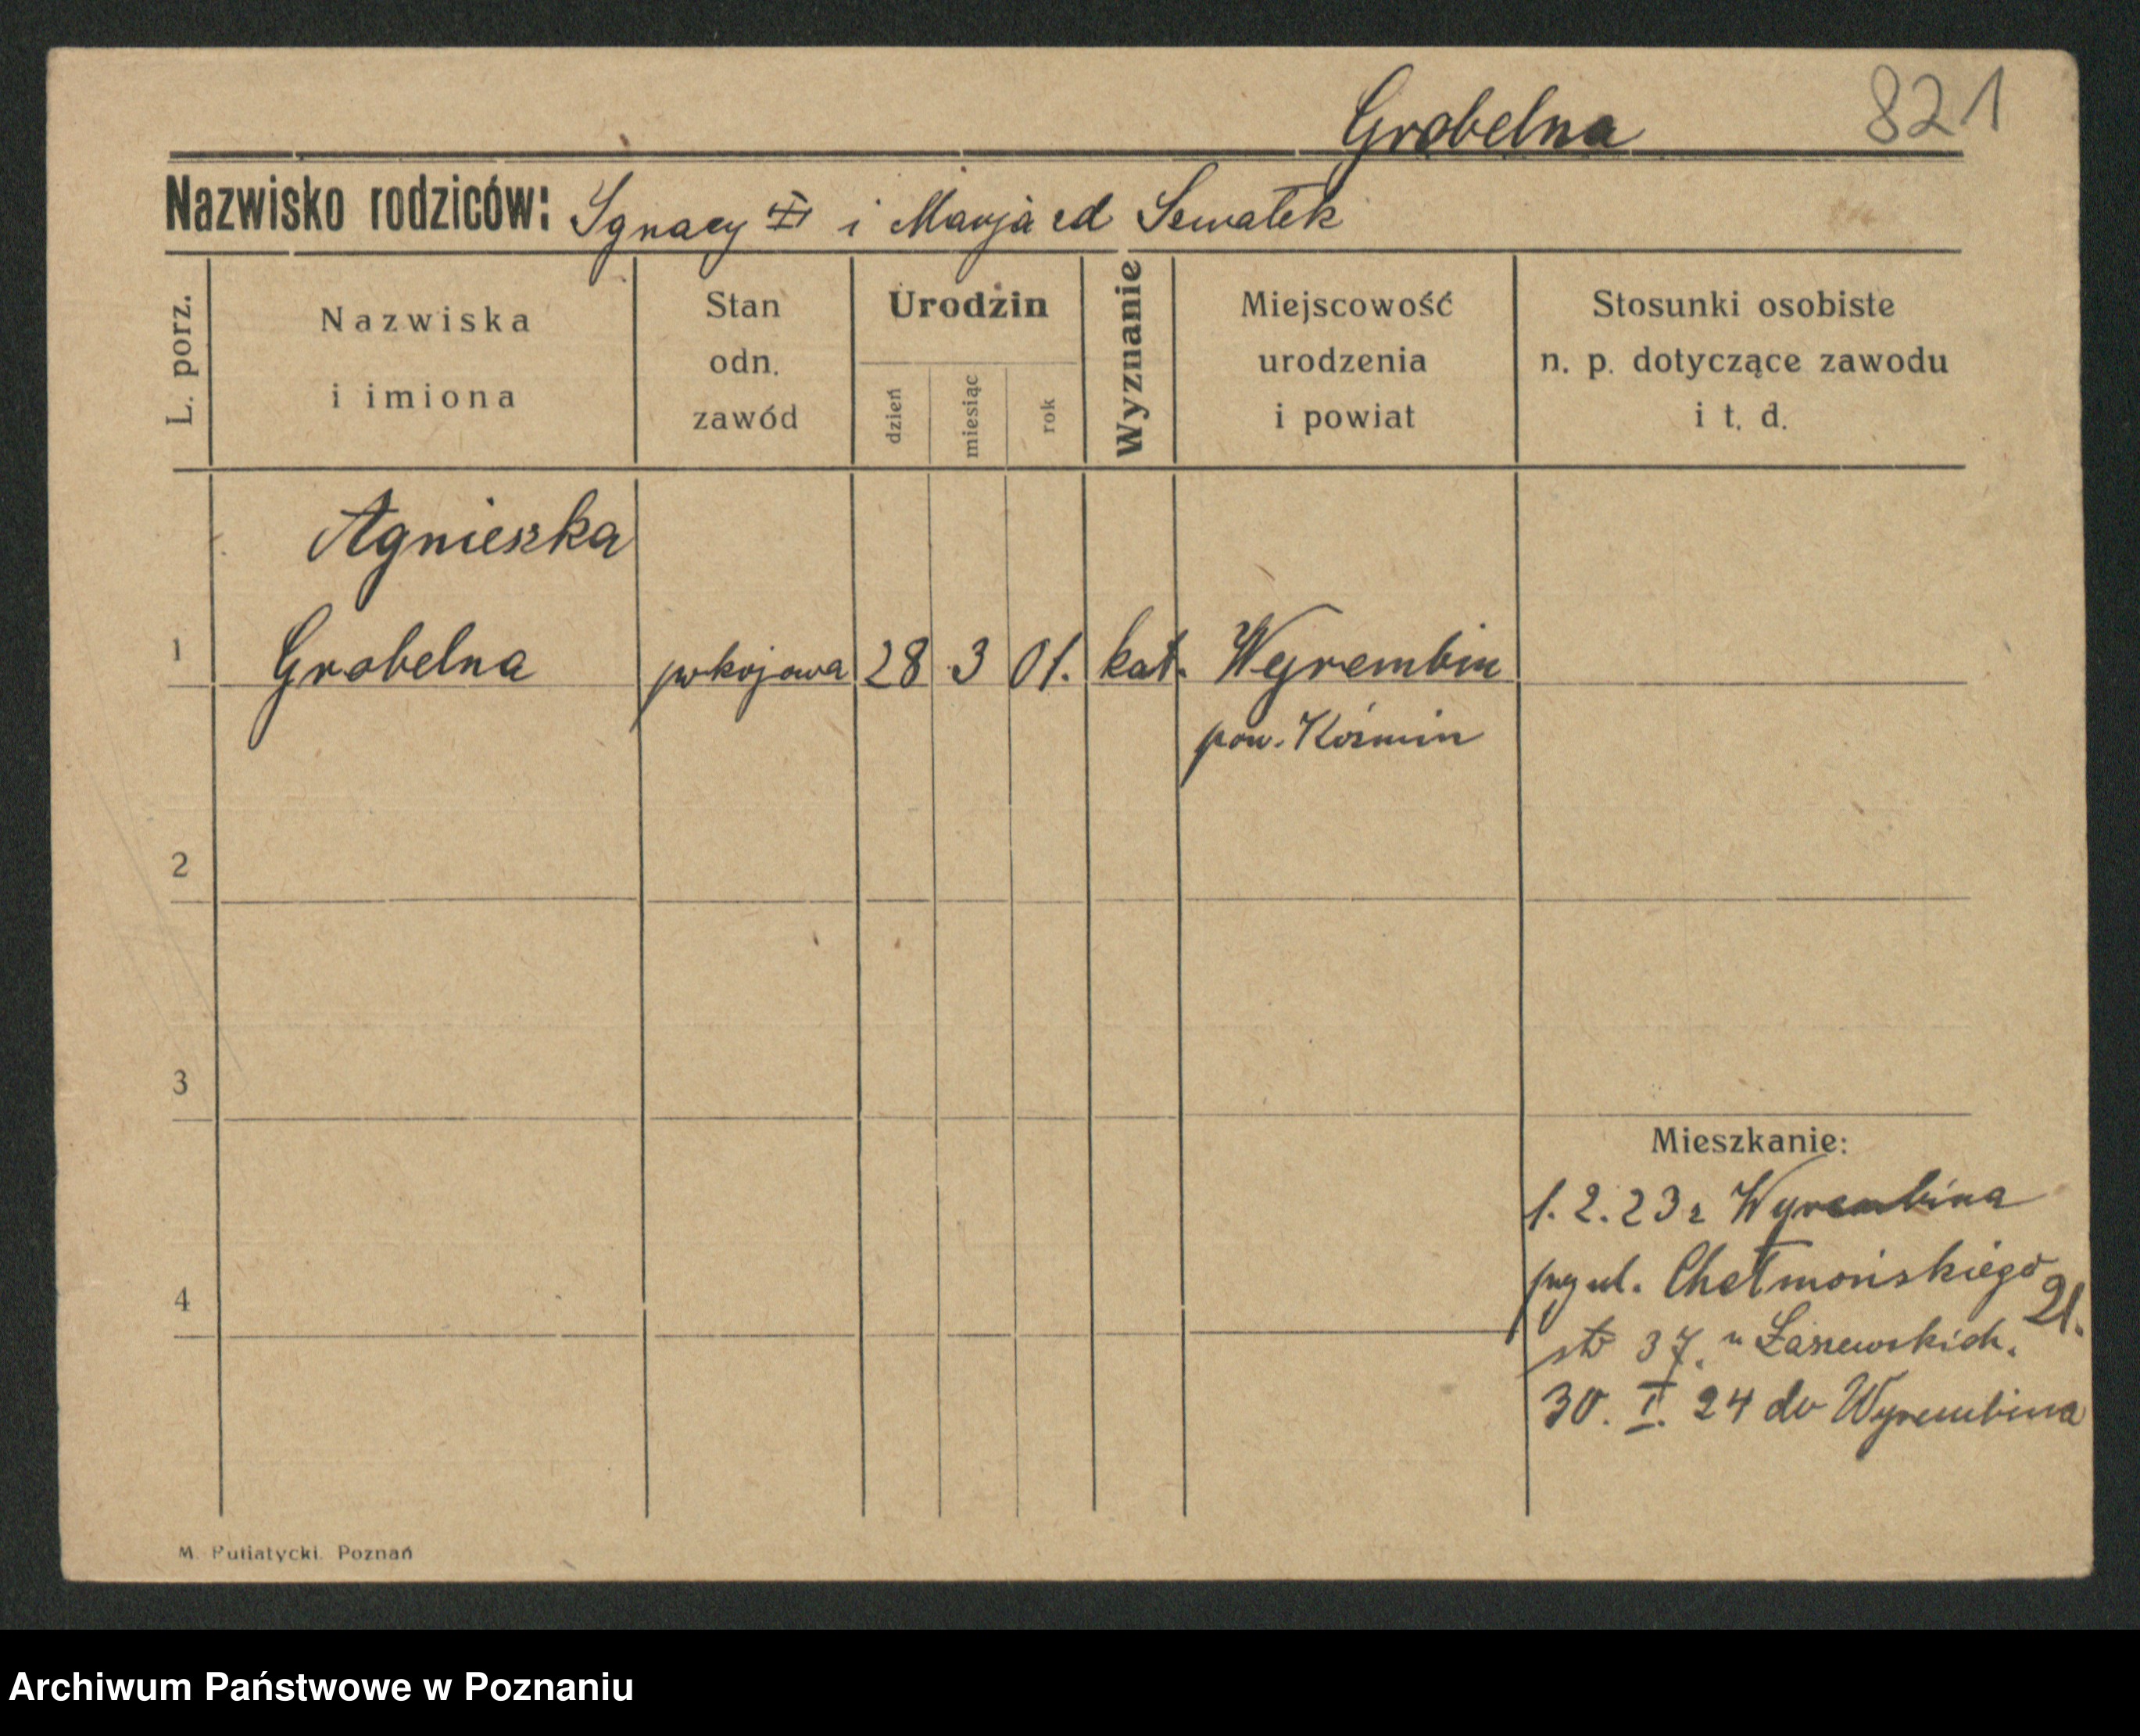 821
Grobelna
Nazwisko rodziców: Ignacy i Marja
L. porz.
Nazwiska
i imiona
Stan
odn.
zawód
Urodzin
dzień
miesiąc
rok
Wyznanie
Miejscowość
urodzenia
i powiat
Stosunki osobiste
n. p. dotyczące zawodu
i t. d.
Agnieszka
1 Grobelna pokojowa 28 3 01. kat. Wyrembin
pow. Koźmin
2
3
Mieszkanie:
1.2.23 z Wyrembina
ul. Chełmońskiego 21.
4
str 37. u Łaszewskich.
30. I. 24 do Wyrembina
M. Putiatycki. Poznań
Archiwum Państwowe w Poznaniu